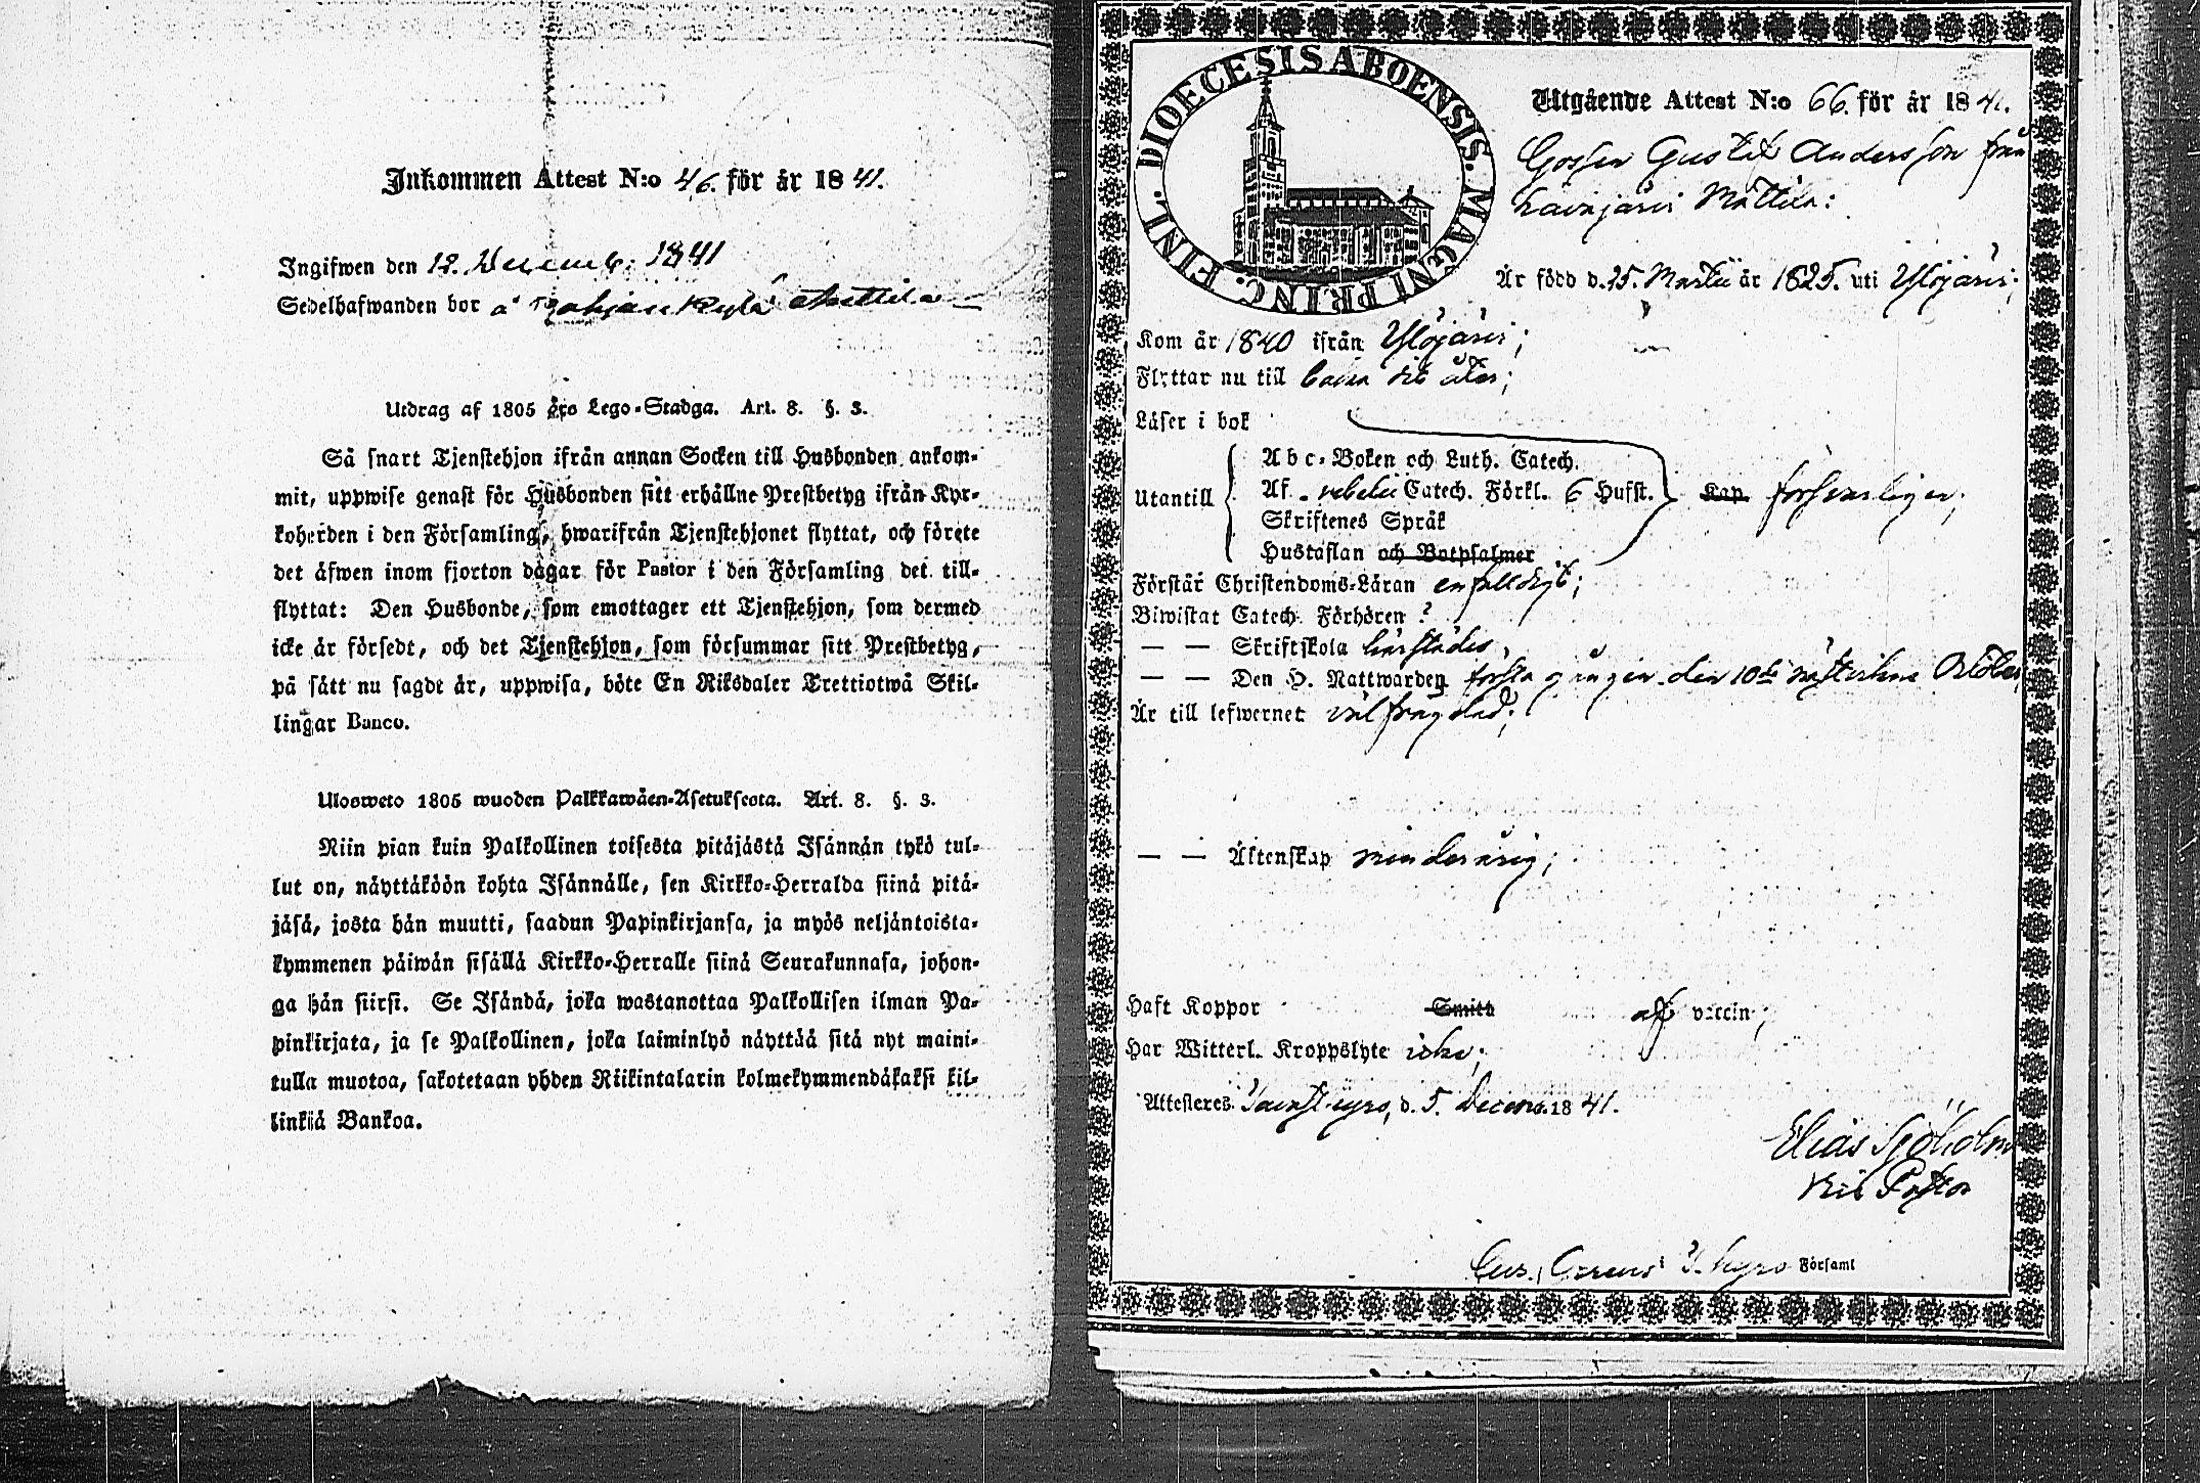 Inkommen Attest N:o 46. för år 1841.
Ingifwen den 12. Decemb. 1841
Sedelhafwanden bor å Pohjankylä Mattila
Utdrag af 1805 års Lego-Stadga. Art. 8. §. 3.
Så snart Tjenstehjon ifrån annan Socken till Husbonden ankom-
mit, uppwise genast för Husbonden sitt erhållne Prestbetyg ifrån Kyr-
koherden i den Församling, hwarifrån Tjenstehjonet flyttat, och förete
det äfwen inom fjorton dagar för Pastor i den Församling det till-
flyttat: Den Husbonde, som emottager ett Tjenstehjon, som dermed
icke är försedt, och det Tjenstehjon, som försummar sitt Prestbetyg,
på sätt nu sagdt är, uppwisa, böte En Riksdaler Trettiotwå Skil-
lingar Banco.
Ulosweto 1805 wuoden Palkkawäen-Asetuksesta. Art. 8. §. 3.
Niin pian kuin Palkollinen toisesta pitäjästä Isännän tykö tul-
lut on, näyttäköön kohta Isännälle, sen Kirkko-Herralda siinä pitä-
jäsä, josta hän muutti, saadun Papinkirjansa, ja myös neljäntoista-
kymmenen päiwän sisällä Kirkko-Herralle siinä Seurakunnasa, johon-
ga hän siirsi. Se Isändä, joka wastanottaa Palkollisen ilman Pa-
pinkirjata, ja se Palkollinen, joka laiminlyö näyttää sitä nyt maini-
tulla muotoa, sakotetaan yhden Riikintalarin kolmekymmendäkaksi kil-
linkiä Bankoa.
DIOECESIS ABOENSIS. MAGNI PRINC. FINL.
Utgående Attest N:o 66. för år 1841.
Gossen Gustaf Andersson från
Lavajärvi Mattila:
Är född d. 25. Martii år 1825. uti Ylöjärvi;
Kom år 1840 ifrån Ylöjärvi;
Flyttar nu till dit åter;
Läser i bok
Abc-Boken och Luth. Catech.
Utantill Af Catech. Förkl. 6 Hufst. Kap. försvarligen;
Skriftenes Språk
Hustaflan och Botpsalmer
Förstår Christendoms-Läran enfalldigt;
Biwistat Catech. Förhören ?
— — Skriftskola härstädes,
— — Den H. Nattwarden första gången den 10de nästvikne October;
Är till lefwernet välfrägdad;
— — Äktenskap minderårig;
Haft Koppor Smitt af vaccin;
Har Witterl. Kroppslyte icke;
Attesteras Tavastkyro, d. 5. Decemb. 1841.
Elias Sjöholm
Vice Pastor
i T. Kyro Församl